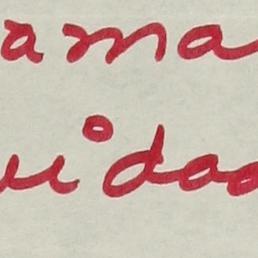 ama
uidad